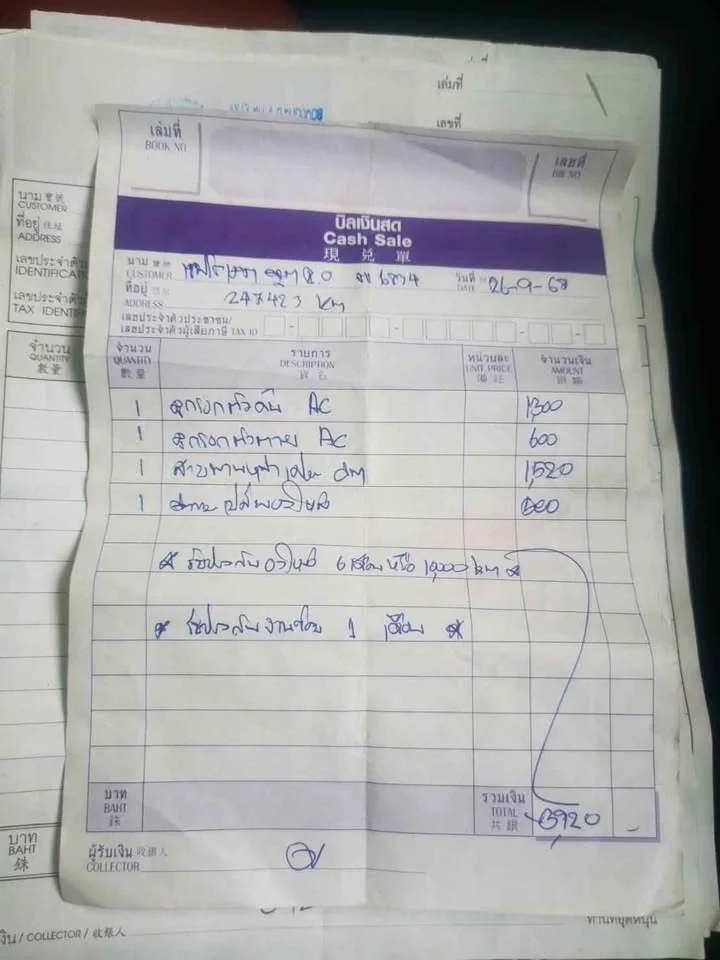 เล่มที่
เลขที่
เล่มที่
BOOK NO
เลขที่
BILL NO
บิลเงินสด
Cash Sale
現 兌 單
นาม 寶號
CUSTOMER
2.0
6874
วันที่
DATE
26-9-68
ที่อยู่ 住址
ADDRESS
247423 km
เลขประจำตัวประชาชน/
เลขประจำตัวผู้เสียภาษี TAX ID
จำนวน
QUANTITY
數量
รายการ
DESCRIPTION
貨 名
หน่วยละ
UNIT PRICE
備 註
จำนวนเงิน
AMOUNT
銀 額
1 ลูกรอกตัวดัน AC 1300
1 ลูกรอกตัวตาย AC 600
1 สายพานหน้าเครื่อง 1,520
1
* รับประกันอะไหล่ 6 เดือนหรือ 10,000 km *
* รับประกันงานซ่อม 1 เดือน *
บาท
BAHT
銖
รวมเงิน
TOTAL
共 銀
3,920 -
ผู้รับเงิน 收銀人
COLLECTOR
นาม 寶號
CUSTOMER
ที่อยู่ 住址
ADDRESS
เลขประจำตัว
IDENTIFICAT
เลขประจำตัว
TAX IDENTI
จำนวน
QUANTITY
數量
บาท
BAHT
銖
งิน / COLLECTOR / 收銀人